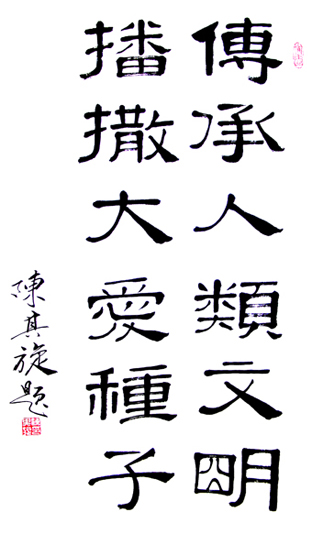 傳承人類文明
播撒大愛種子
陳其旋題